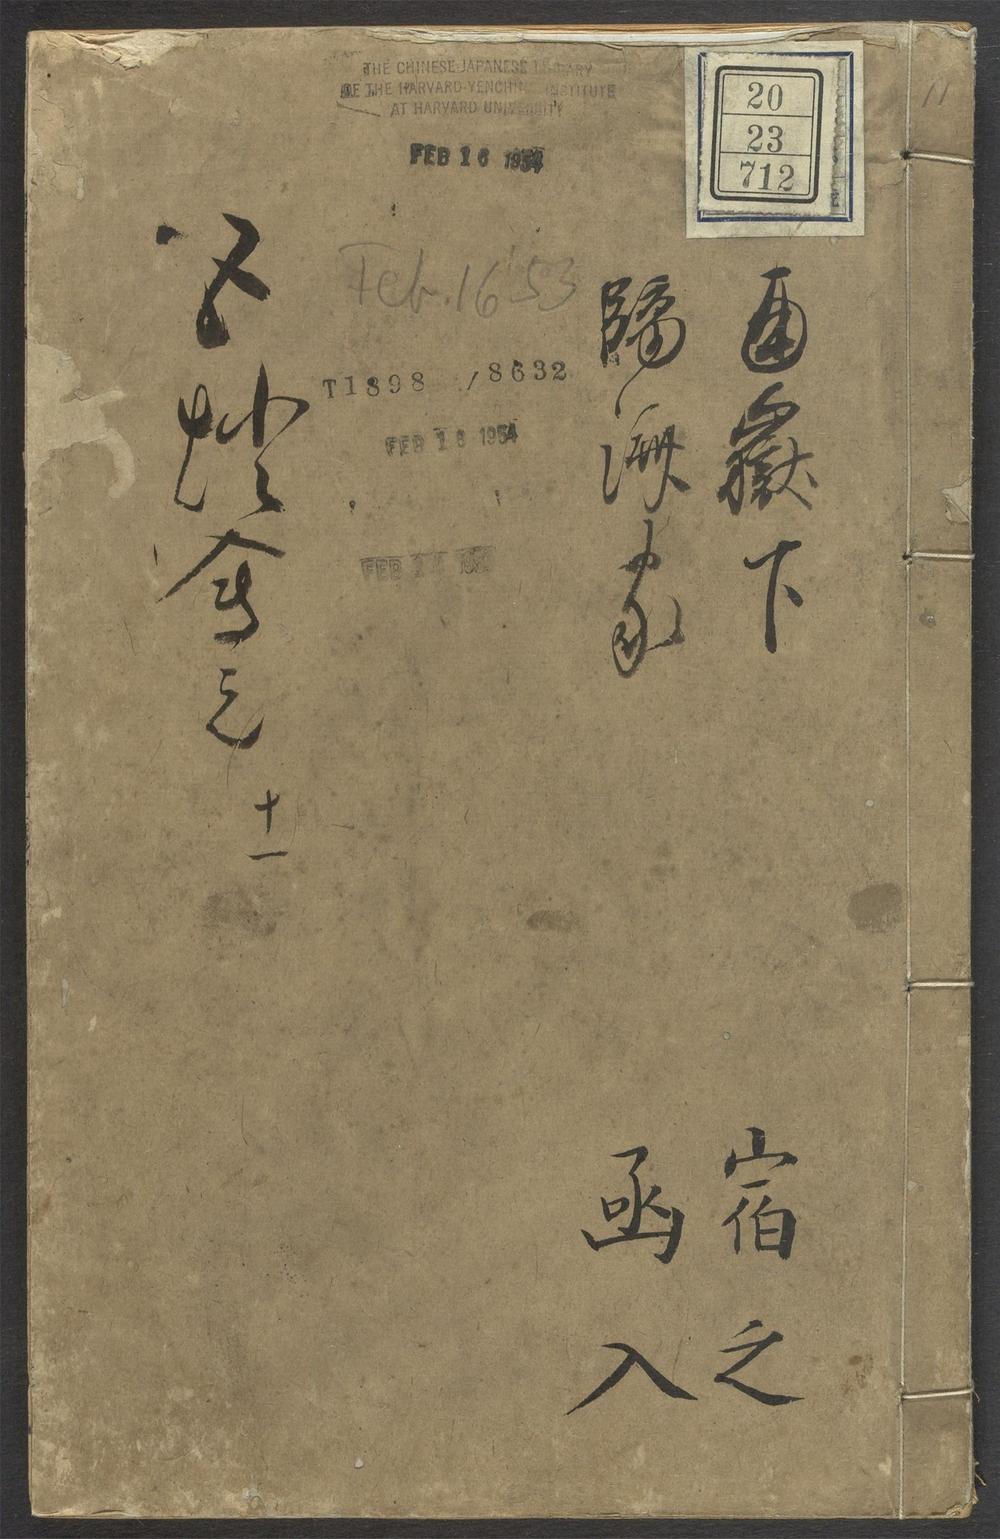 THE CHINESE-JAPANESE LIBRARY
OF THE HARVARD-YENCHING INSTITUTE
AT HARVARD UNIVERSITY
FEB 16 1954
20
23
712
11
南嶽下
臨濟家
宿之
函入
Feb. 16 '53
T1898 /8632
FEB 18 1954
FEB
五燈會元
十一